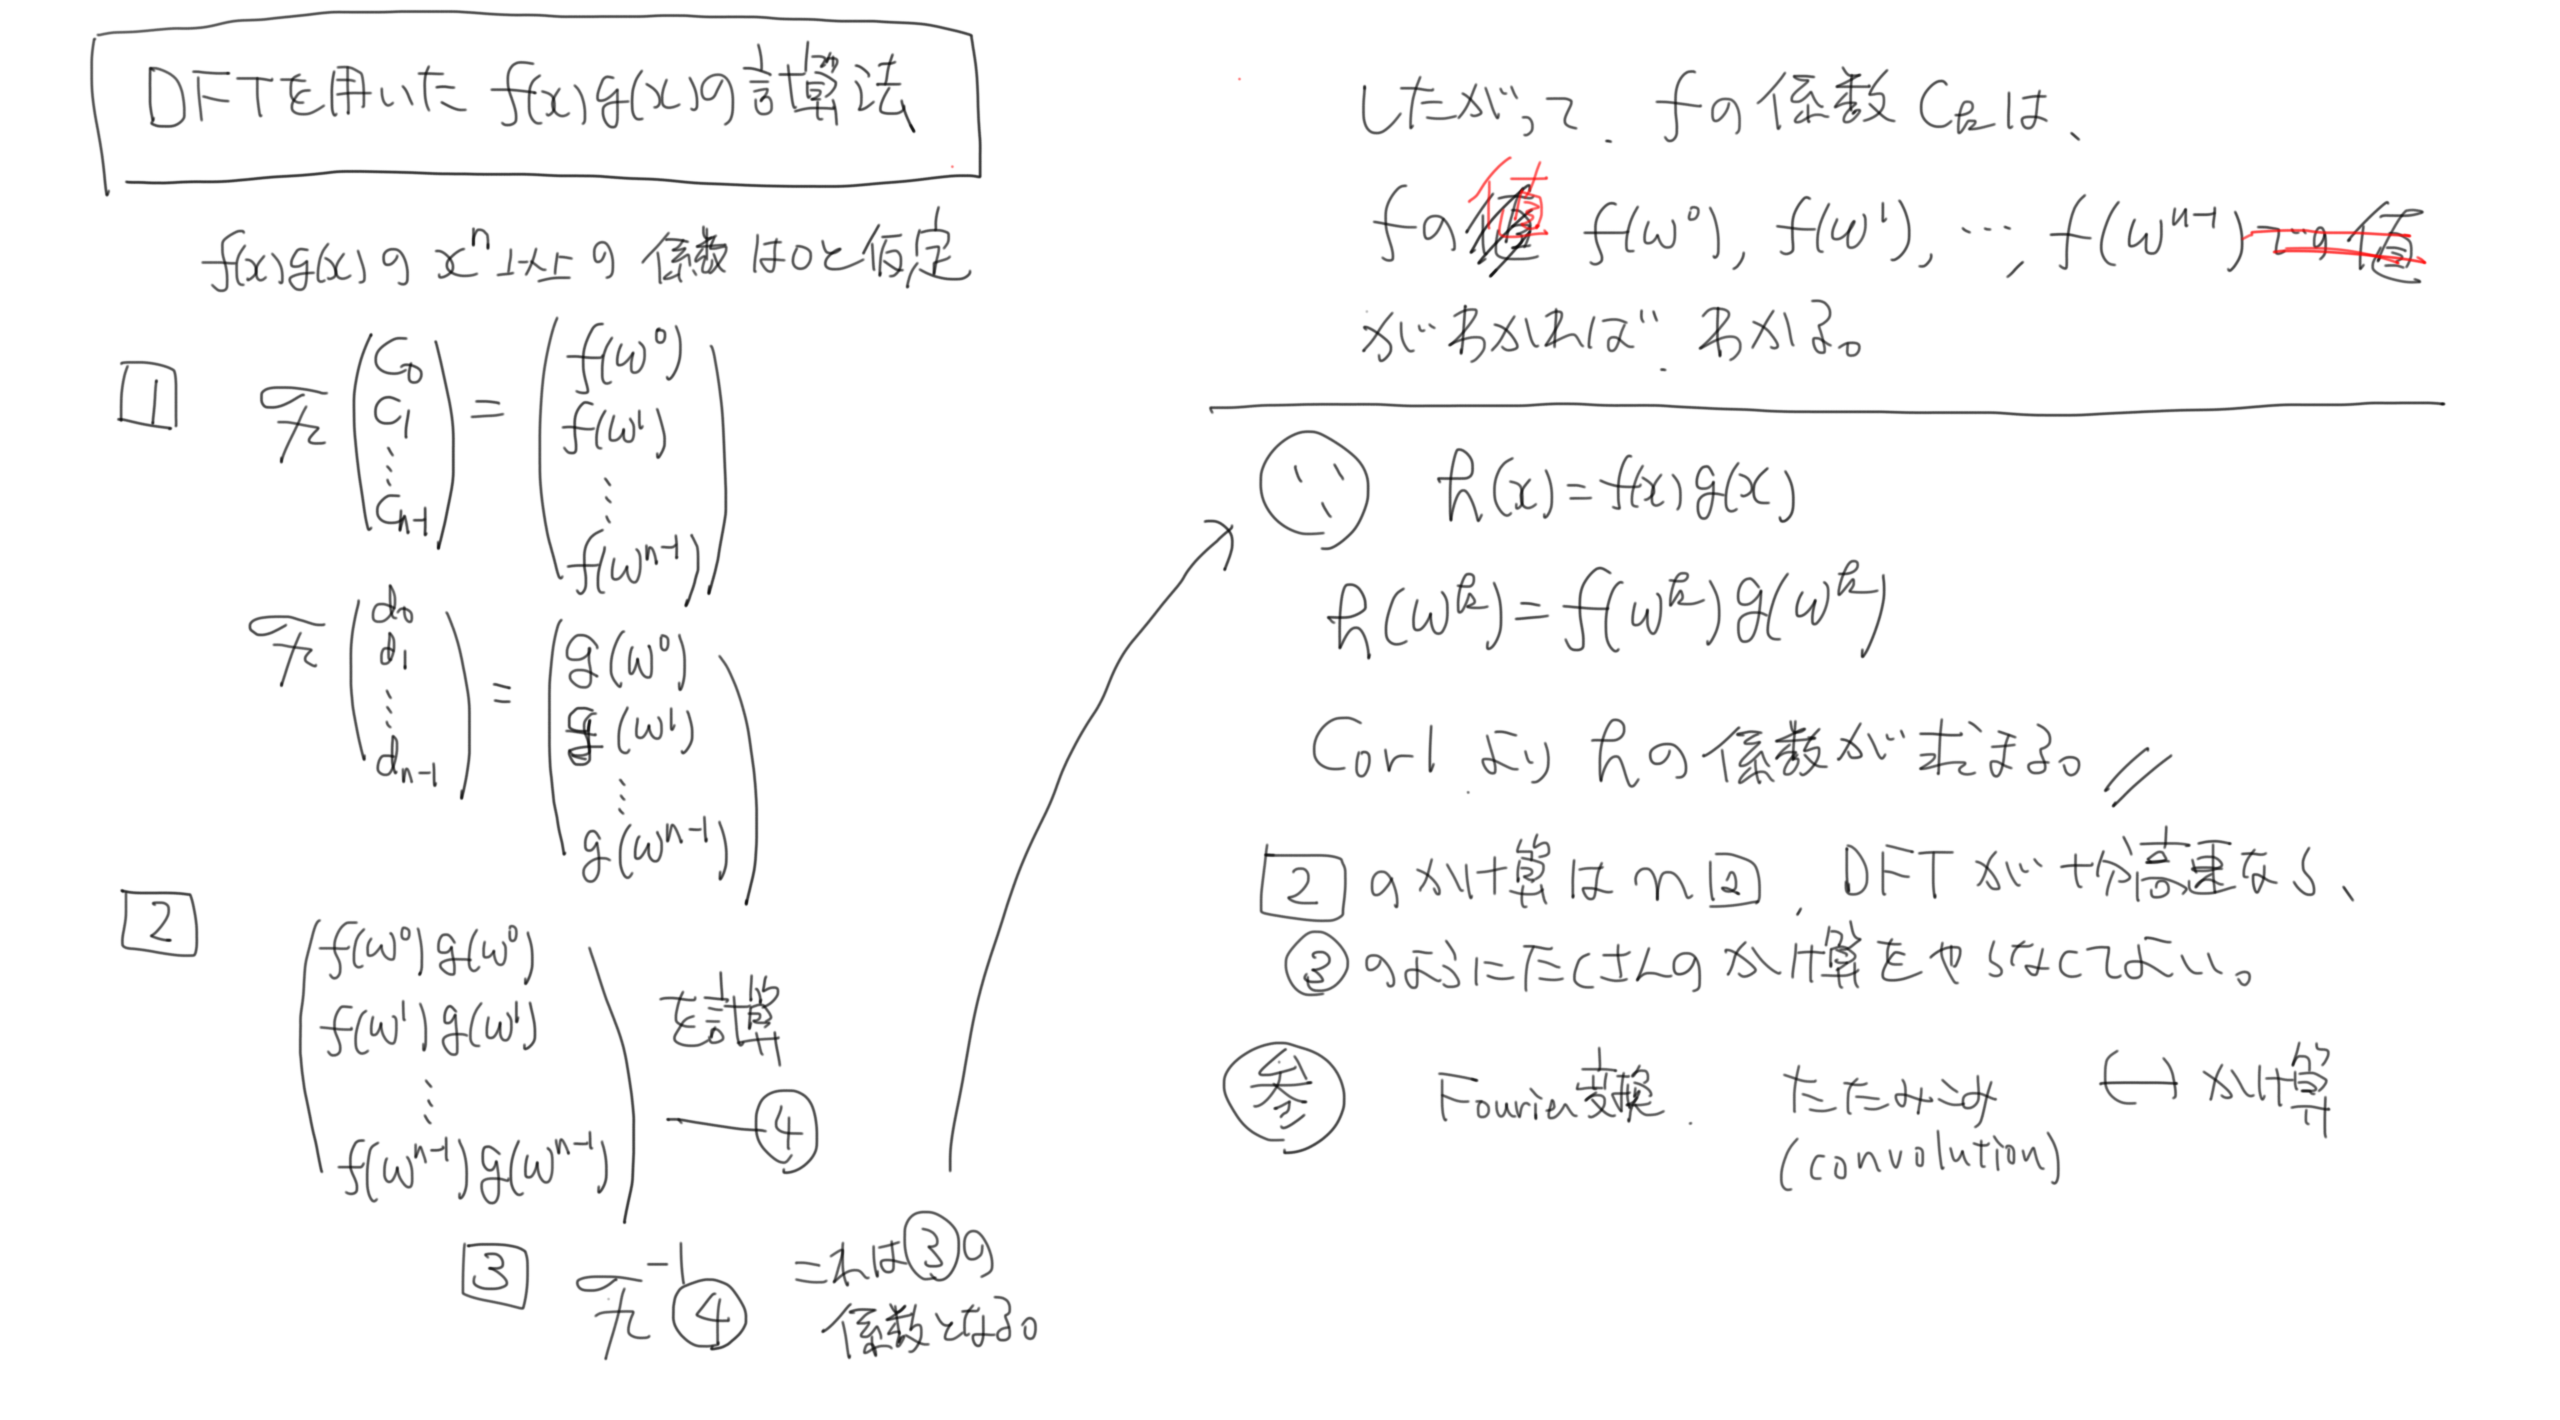 DFTを用いた f(x)g(x)の計算法
f(x)g(x)の xⁿ以上の 係数は0と仮定
1
ℱ (c₀ c₁ ⋮ cₙ₋₁) = (f(ω⁰) f(ω¹) ⋮ f(ωⁿ⁻¹))
ℱ (d₀ d₁ ⋮ dₙ₋₁) = (g(ω⁰) g(ω¹) ⋮ g(ωⁿ⁻¹))
2
(f(ω⁰)g(ω⁰) f(ω¹)g(ω¹) ⋮ f(ωⁿ⁻¹)g(ωⁿ⁻¹)) を計算 — ④
3 ℱ⁻¹④ これは③の
係数となる。
したがって、fの係数 Cₖは、
fの値 f(ω⁰), f(ω¹), …, f(ωⁿ⁻¹)での値
がわかれば、わかる。
∵ h(x)=f(x)g(x)
h(ωᵏ)=f(ωᵏ)g(ωᵏ)
Cor1 より hの係数が求まる。//
2 のかけ算はn回、DFTが十分高速なら、
③のようにたくさんのかけ算をやらなくてよい。
参 Fourier変換. たたみこみ ↔ かけ算
(convolution)